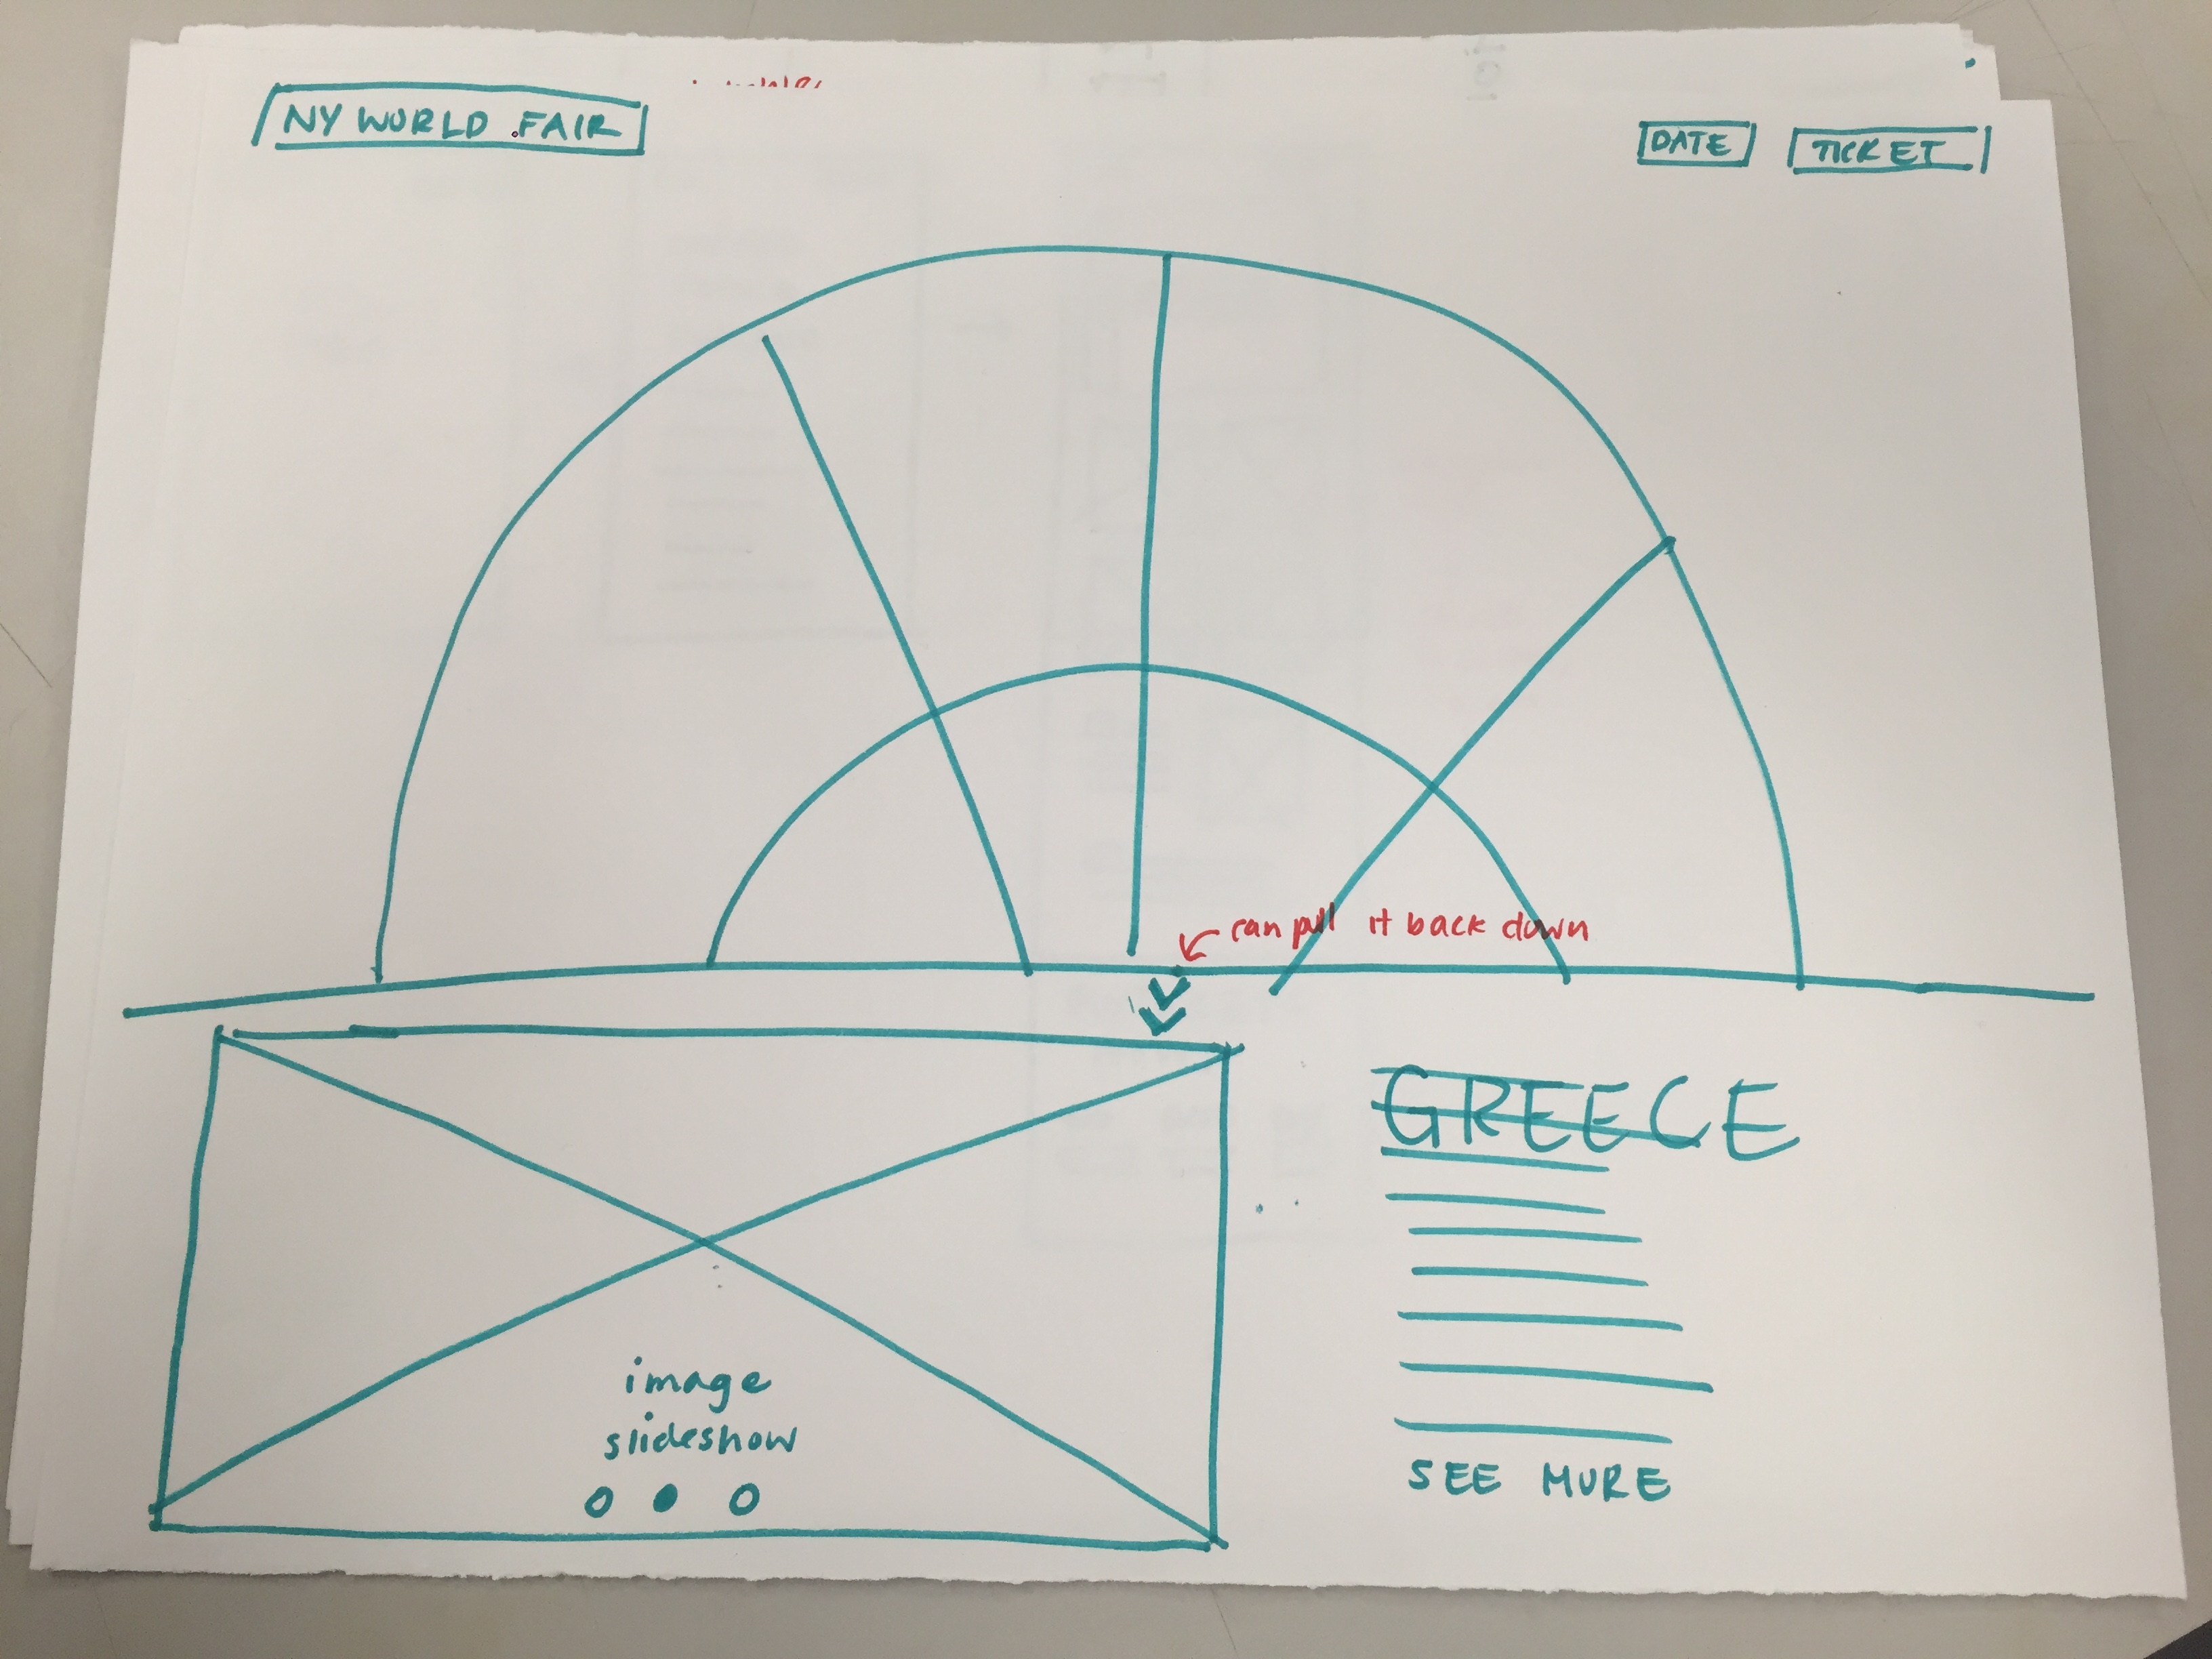 NY WORLD FAIR
DATE
TICKET
can pull it back down
GREECE
image
slideshow
SEE MORE